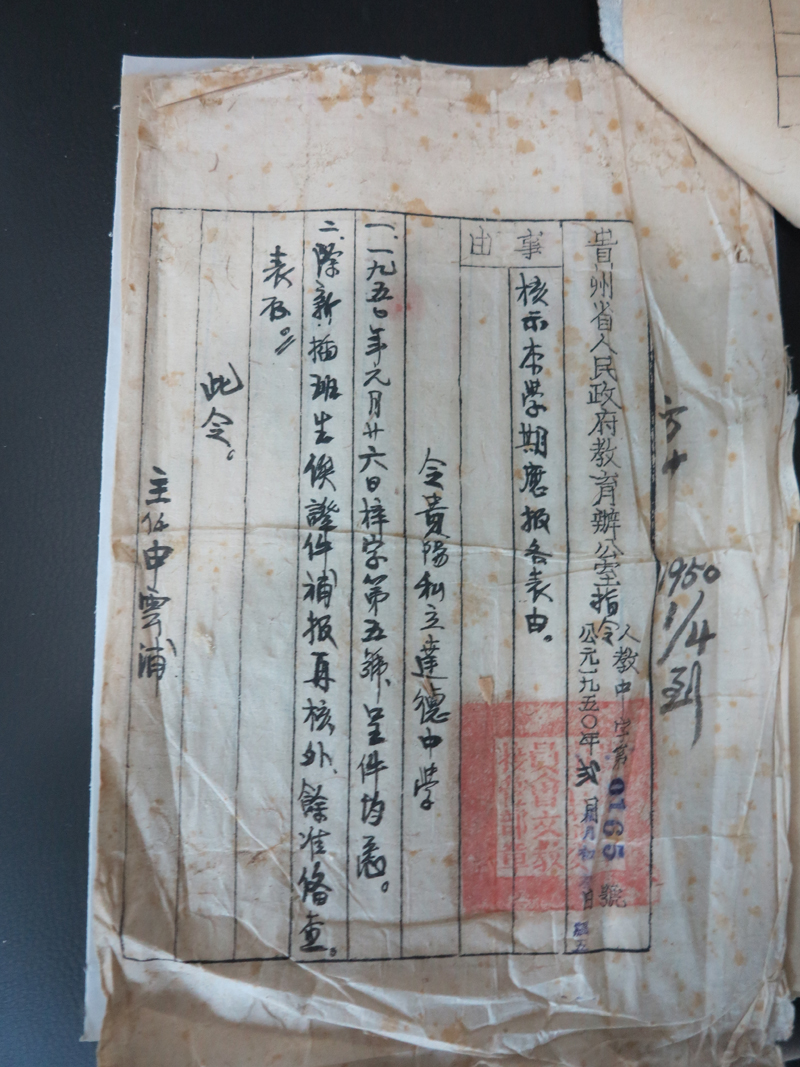 1950
1/4
到
貴州省人民政府教育辦公室指令
人教中字第0165號
公元一九五〇年弍月
事由
核示本學期應报各表由。
令貴陽私立達德中学
一、一九五〇年元月廿六日梓字第五號呈件均悉。
二、除新插班生俟證件補报再核外、餘准俻查。
表存。
此令。
主任申雲浦